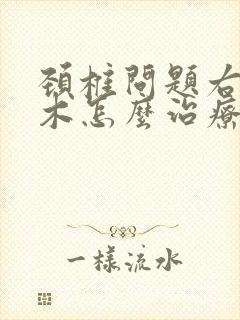 頚椎問題右
木怎麼治療
一樣流水